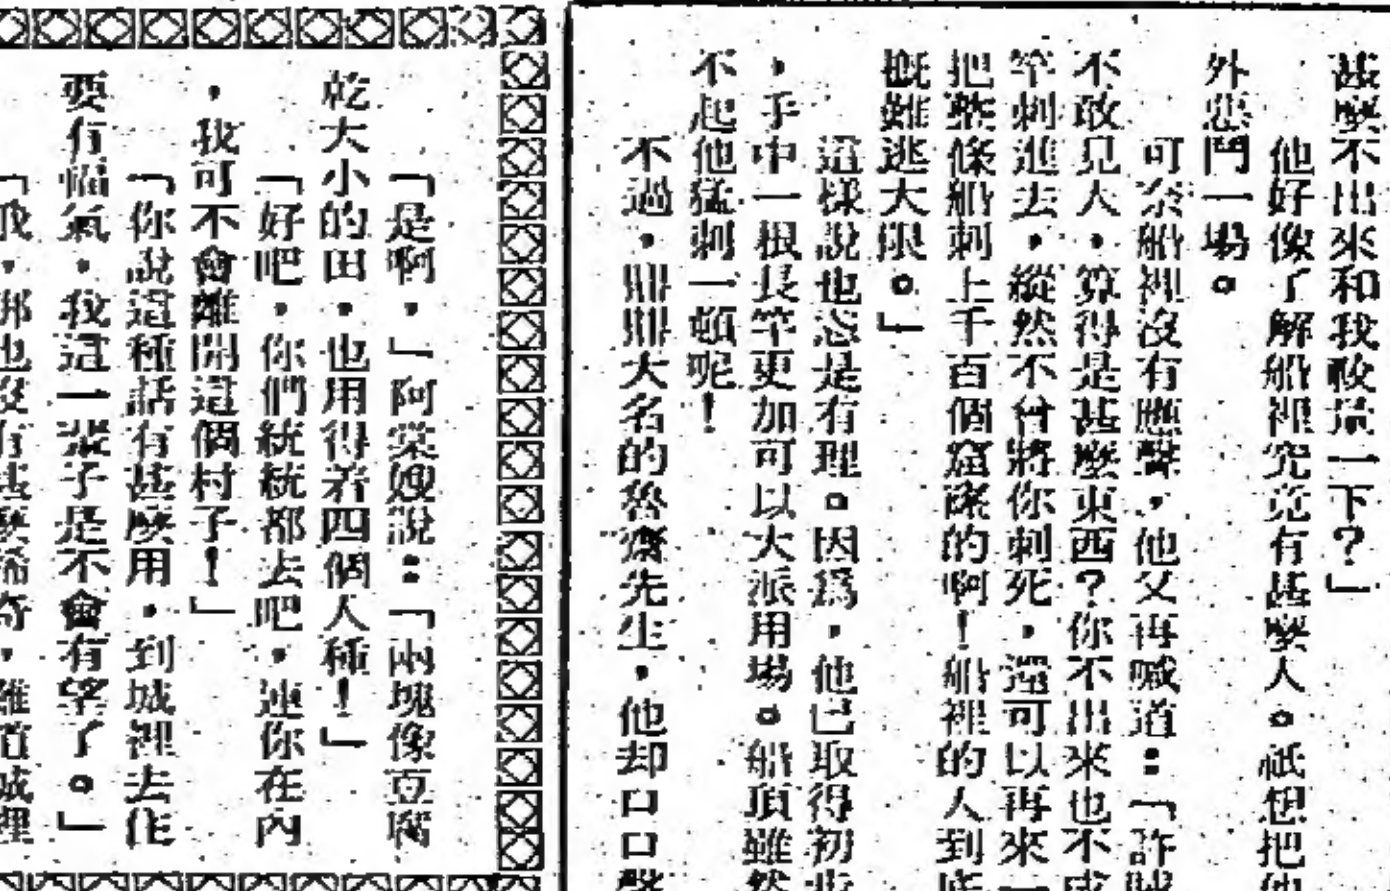 甚麼不出來和我較量一下？」
他好像了解船裡究竟有甚麼人。祇想把他
外惡鬥一場。
可奈船裡沒有應聲，他又再喊道：「許
不敢見人，算得是甚麼東西？你不出來也不成
竿刺進去，縱然不曾將你刺死，還可以再來一
把整條船刺上千百個窟窿的啊！船裡的人到底
概難逃大限。」
這樣說也恣是有理。因爲，他已取得初步
，手中一根長竿更加可以大派用場。船頂雖然
不起他猛刺一頓呢！
不過，鼎鼎大名的魯齋先生，他却口口聲
「是啊，」阿棠嫂說：「兩塊像豆腐
乾大小的田，也用得着四個人種！」
「好吧，你們統統都去吧，連你在內
，我可不會離開這個村子！」
「你說這種話有甚麼用，到城裡去住
要有福氣，我這一輩子是不會有望了。」
「我，那也沒有甚麼稀奇，難道城裡